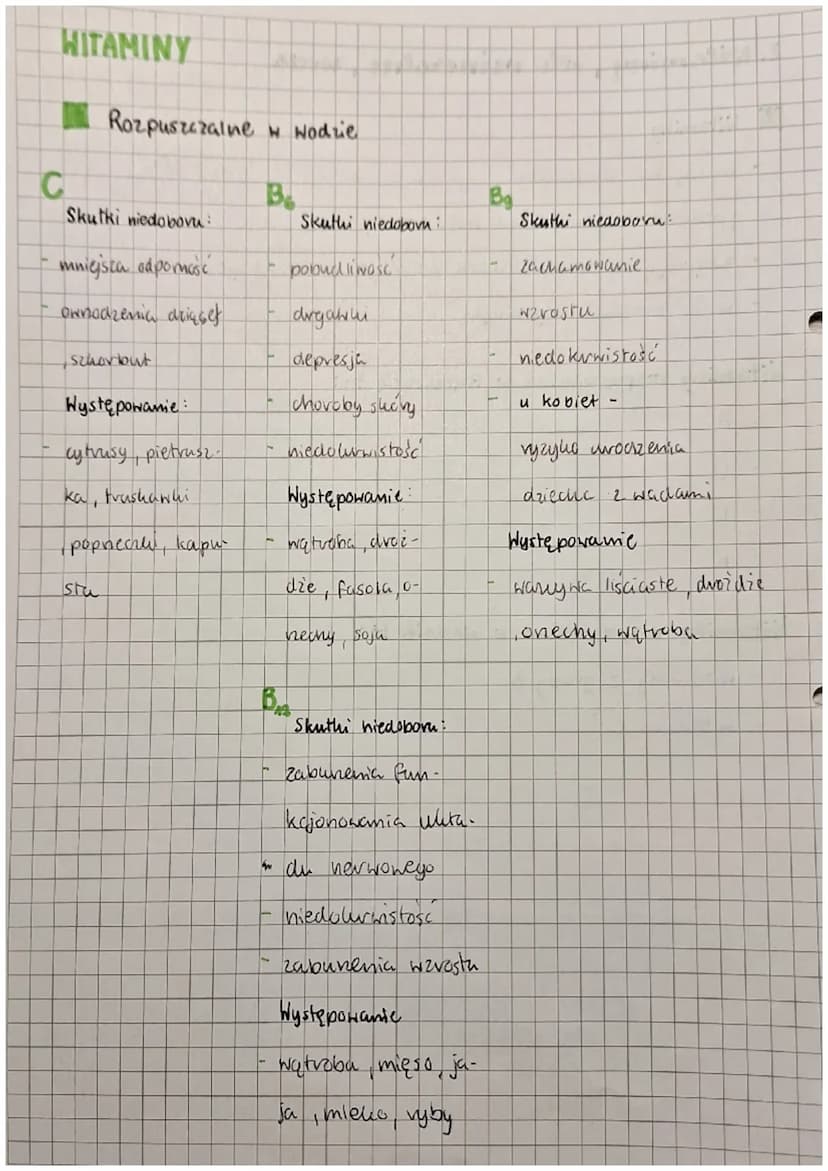 WITAMINY
Rozpuszczalne w wodzie
C
Skutki niedoboru:
- mniejsza odporność
- owrodzenia dziąseł
, szkorbut
Występowanie:
- cytrusy, pietrusz-
ka, truskawki
, poprzeczki, kapu-
sta
B6
Skutki niedoboru:
- pobudliwość
- drgawki
- depresja
- choroby skóry
- niedokrwistość
Występowanie:
- wątroba, droż-
dże, fasola, o-
rzechy, soja
B9
Skutki niedoboru:
- zachamowanie
wzrostu
- niedokrwistość
- u kobiet -
ryzyko urodzenia
dziecka z wadami
Występowanie
- warzywa liściaste, drożdże
, orzechy, wątroba
B12
Skutki niedoboru:
- zaburzenia fun-
kcjonowania ukła-
du nerwowego
- niedokrwistość
- zaburzenia wzrostu
Występowanie
- wątroba, mięso, ja-
ja, mleko, ryby